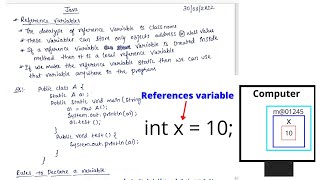 Java
30/08/2022
Reference Variables
* The datatype of reference variable is classname
* These variables can store only objects address or null value
* If a reference variable is created inside
method then it is a local reference variable
* If we make the reference variable static then we can use
that variable anywhere in the program
Public class A {
Static A a1;
Public static void main(String
a1 = new A();
System.out.println(a1);
a1.test();
}
Public void test() {
System.out.println(a1);
}
}
Rules to Declare a variable
References variable
int x = 10;
Computer
m@01245
X
10